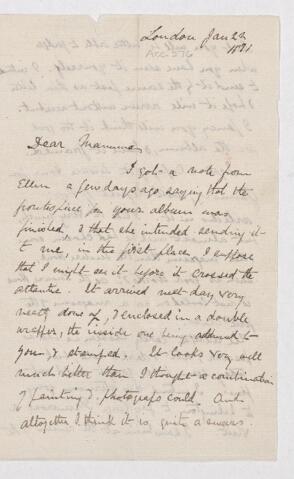 London Jan 22
1871
Acc. 576
Dear Mamma
I got a note from
Ellen a few days ago saying that the
frontispiece for your album was
finished, & that she intended sending it
to me, in the first place, I suppose
that I might see it before it crossed the
atlantic. It arrived next day, very
neatly done up, & enclosed in a double
wrapper, the inside one being addressed to
you & stamped. It looks very well
much better than I thought a combination
of painting & photograph could. And
altogether I think it is quite a success.